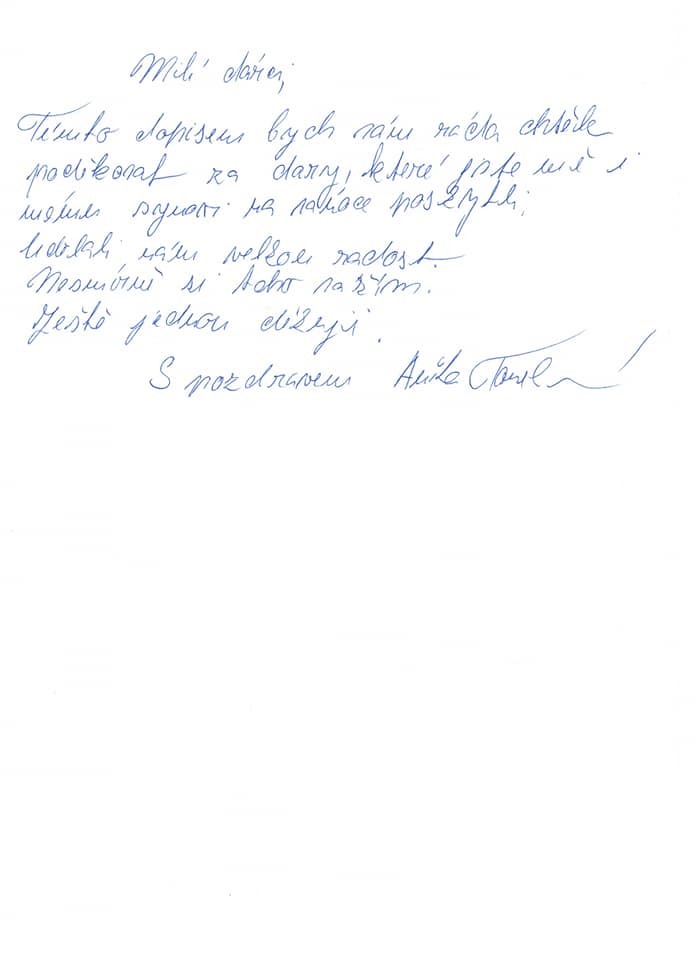 Milí dárci,
Tímto dopisem bych vám ráda chtěla
poděkovat za dary, které jste mě i
mému synovi na vánoce poskytli.
Udělali nám velkou radost.
Nesmírně si toho vážím.
Ještě jednou děkuji.
S pozdravem